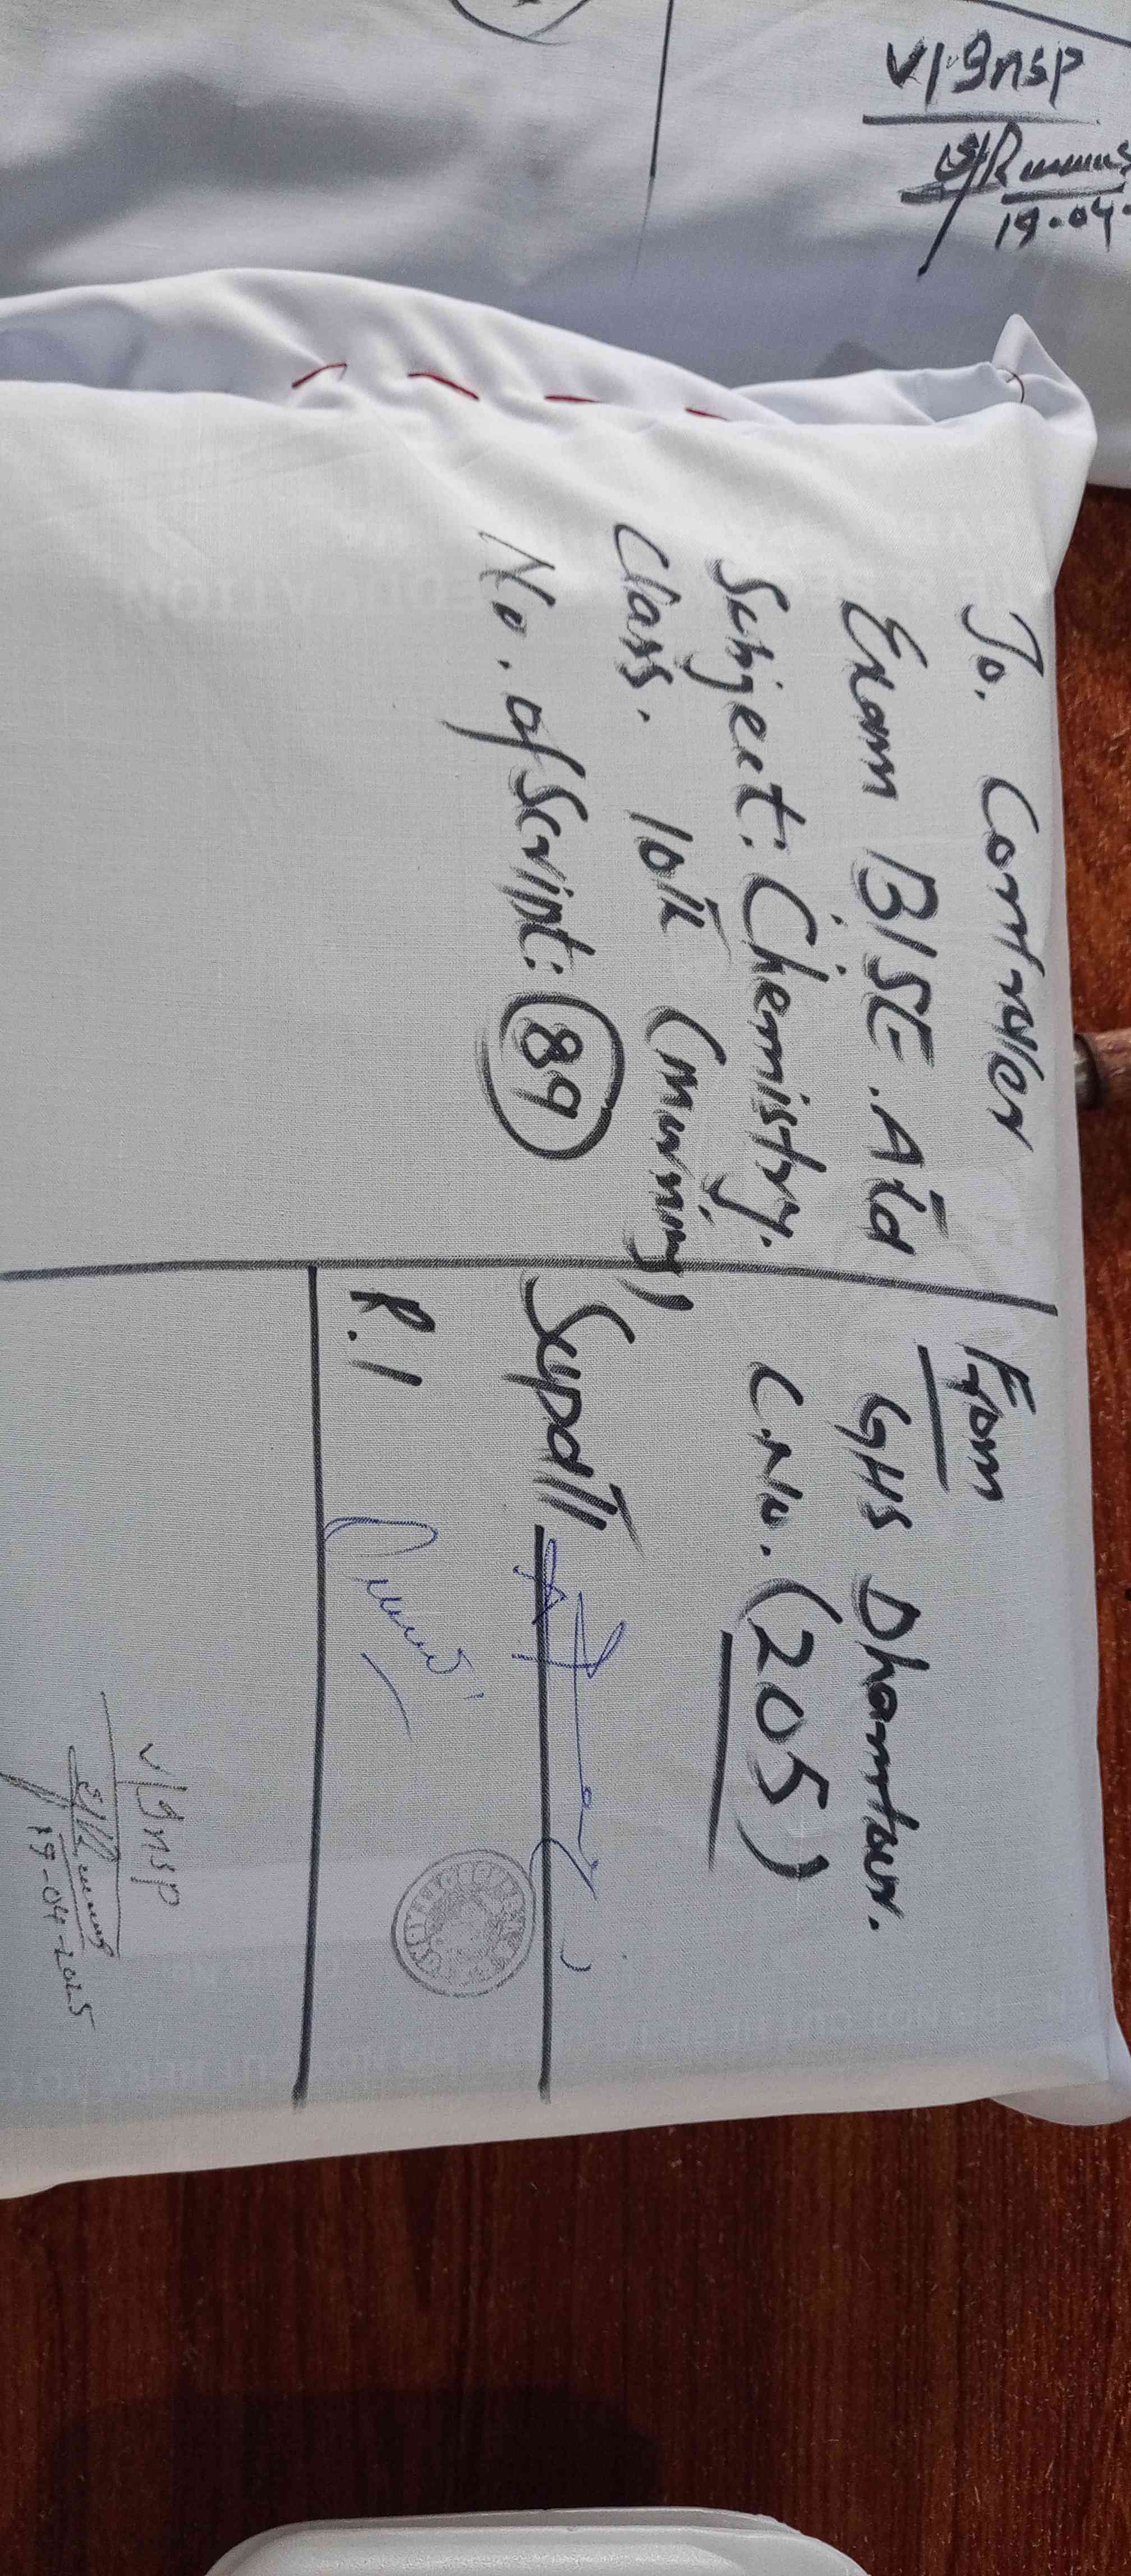 To. Controller
Exam BISE. A.td
Subject: Chemistry.
Class. 10th (Morning)
No. of Script: 89
From
GHS Dhamtour.
C No. (205)
Supdtt
R.I
V/Insp
19-04-2025
V/Insp
19.04.